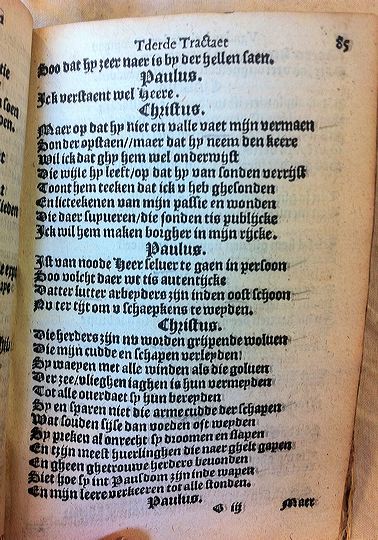 Tderde Tractaet 85
Soo dat hy zeer naer is by der hellen saen.
Paulus.
Ick verstaent wel Heere.
Christus.
Maer op dat hy niet en valle vaet mijn vermaen
Sonder opstaen//maer dat hy neem den keere
Wil ick dat ghy hem wel onderwijst
Die wijle hy leeft/op dat hy van sonden verrijst
Toont hem teeken dat ick v heb ghesonden
En licteekenen van mijn passie en wonden
Die daer supueren/die sonden tis publijcke
Ick wil hem maken borgher in mijn rijcke.
Paulus.
Ist van noode Heer seluer te gaen in persoon
Soo volcht daer wt tis autentijcke
Datter lutter arbeyders zijn inden oost schoon
Nv ter tijt om v schaepkens te weyden.
Christus.
Die herders zijn nv worden grijpende woluen
Die mijn cudde en schapen verleyden/
Sy waepen met alle winden als die goluen
Der zee/vlieghen iaghen is hun vermeyden
Tot alle ouerdaet sy hun bereyden
Sy en sparen niet die arme cudde der schapen
Wat souden sijse dan voeden oft weyden
Sy pieken al onrecht sy droomen en slapen
En tzijn meest huerlinghen die naer ghelt gapen
En gheen ghetrouwe herders beuonden
Siet hoe sy int Pausdom zijn inde wapen
En mijn leere verkeeren tot alle stonden.
Paulus.
G iij Maer